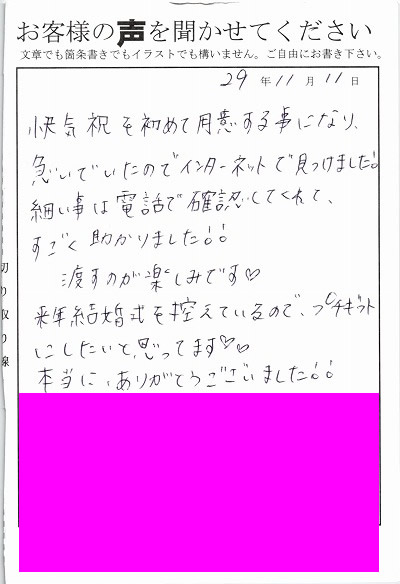 お客様の声を聞かせてください
文章でも箇条書きでもイラストでも構いません。ご自由にお書き下さい。
29年11月11日
快気祝を初めて用意する事になり、
急いでいたのでインターネットで見つけました!!
細い事は電話で確認してくれて、
すごく助かりました!!
渡すのが楽しみです♡
来年結婚式を控えているので、プチギフト
にしたいと思ってます♡♡
本当に、ありがとうございました!!
切り取り線